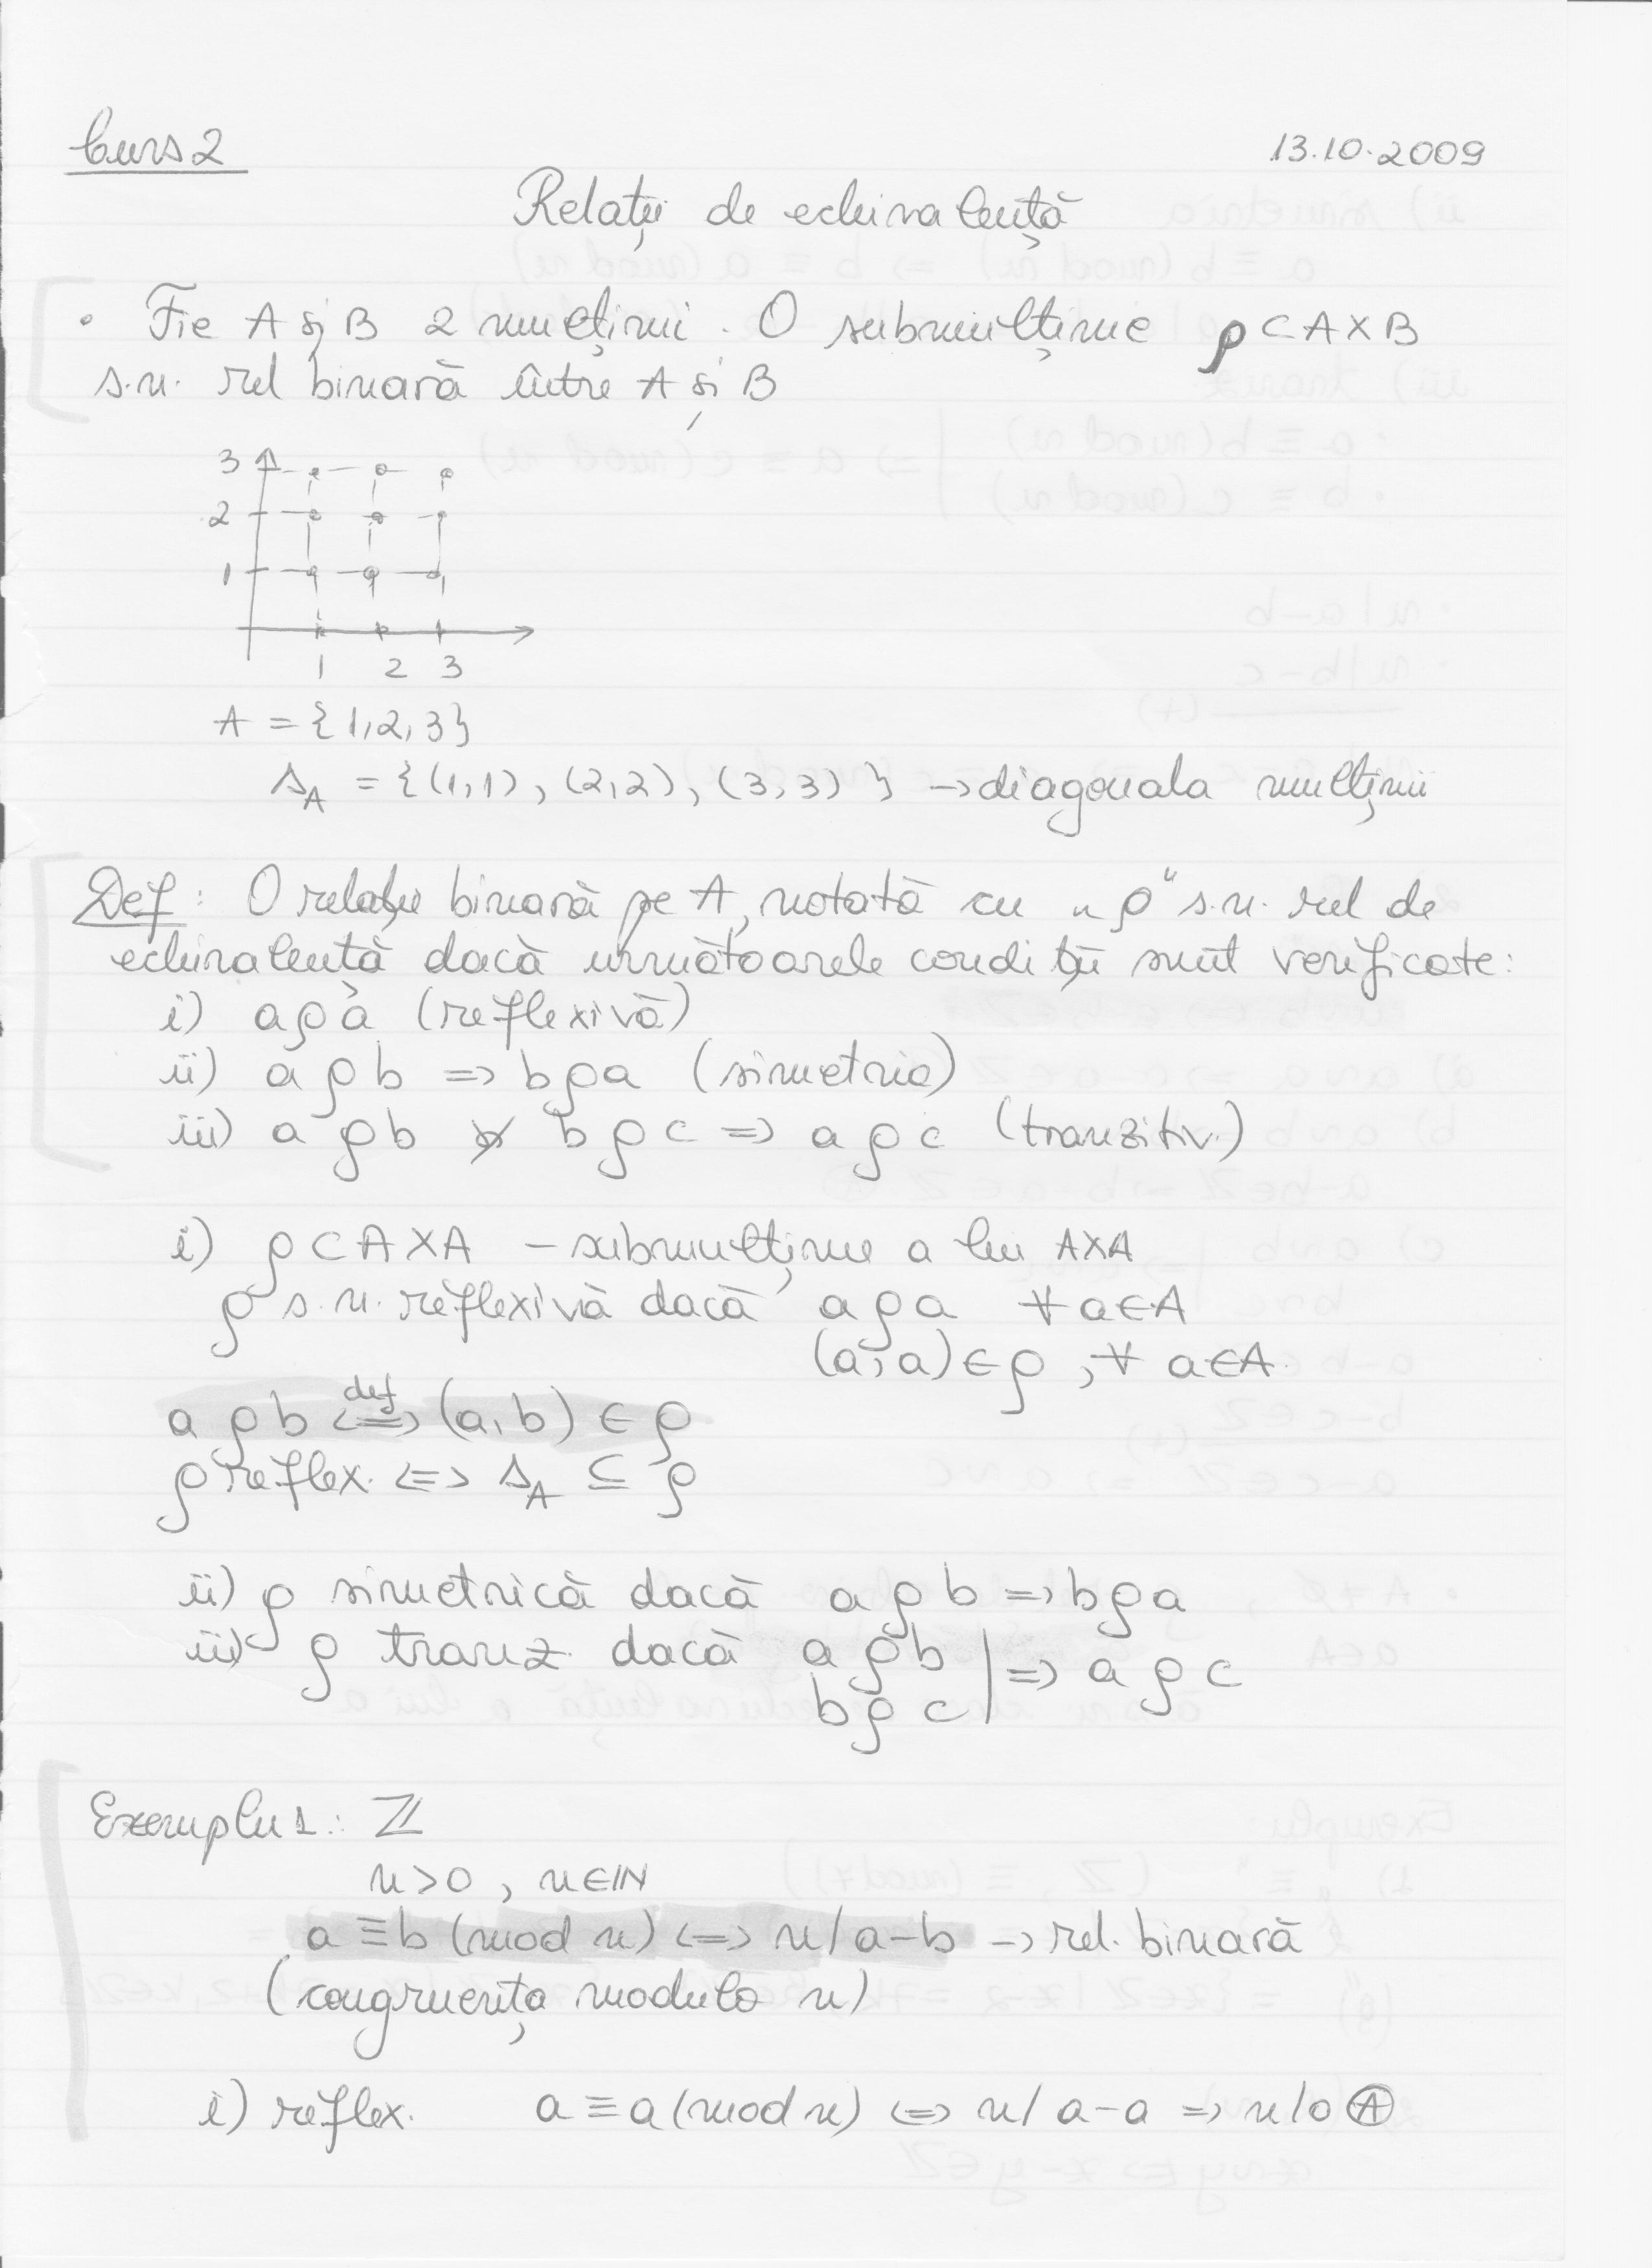 Curs 2
13.10.2009
Relații de echivalență
• Fie A și B 2 mulțimi. O submulțime ρ ⊂ A×B
s.n. rel binară între A și B
3
2
1
1 2 3
A = {1,2,3}
Δ_A = {(1,1), (2,2), (3,3)} → diagonala mulțimii
Def: O relație binară pe A, notată cu „ρ" s.n. rel de
echivalență dacă următoarele condiții sunt verificate:
i) aρa (reflexivă)
ii) aρb => bρa (simetria)
iii) aρb și bρc => aρc (tranzitiv.)
i) ρ ⊂ A×A – submulțime a lui A×A
ρ s.n. reflexivă dacă aρa ∀ a∈A
(a,a)∈ρ, ∀ a∈A.
aρb <=>^def (a,b) ∈ ρ
ρ reflex. <=> Δ_A ⊆ ρ
ii) ρ simetrică dacă aρb => bρa
iii) ρ tranz. dacă aρb | => aρc
bρc |
Exemplu 1: ℤ
n>0, n∈ℕ
a ≡ b (mod n) <=> n/a-b → rel. binară
(congruența modulo n)
i) reflex. a ≡ a (mod n) <=> n/a-a => n/0 Ⓐ